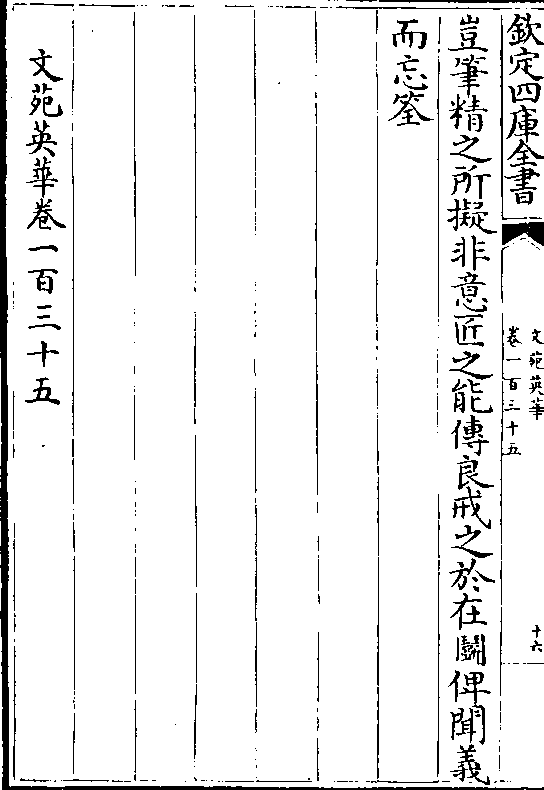 欽定四庫全書
文苑英華
卷一百三十五
十六
豈筆精之所擬非意匠之能傳良戒之於在鬬俾聞義
而忘筌
文苑英華卷一百三十五